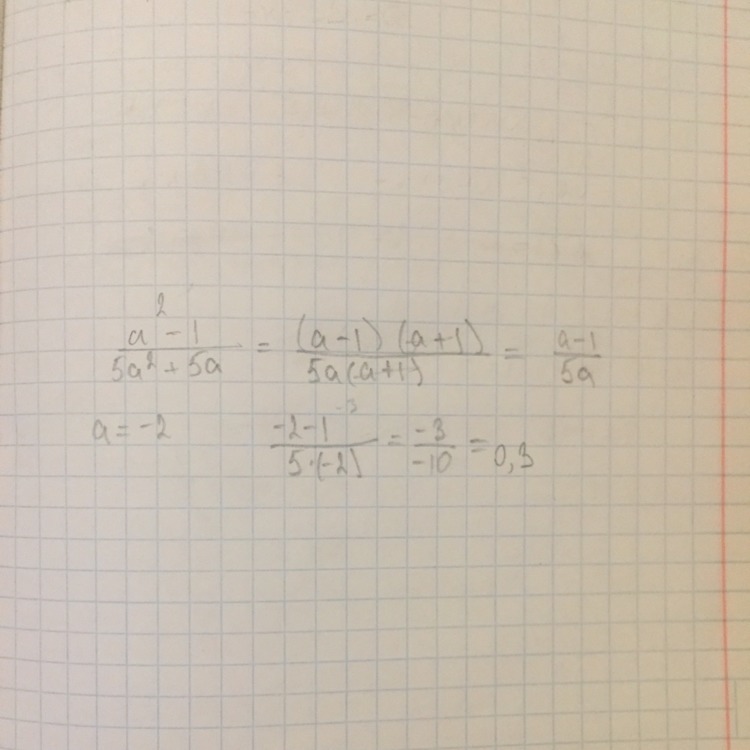 a² - 1 / 5a² + 5a = (a-1)(a+1) / 5a(a+1) = a-1 / 5a
a = -2 -2-1 / 5·(-2) = -3 / -10 = 0,3